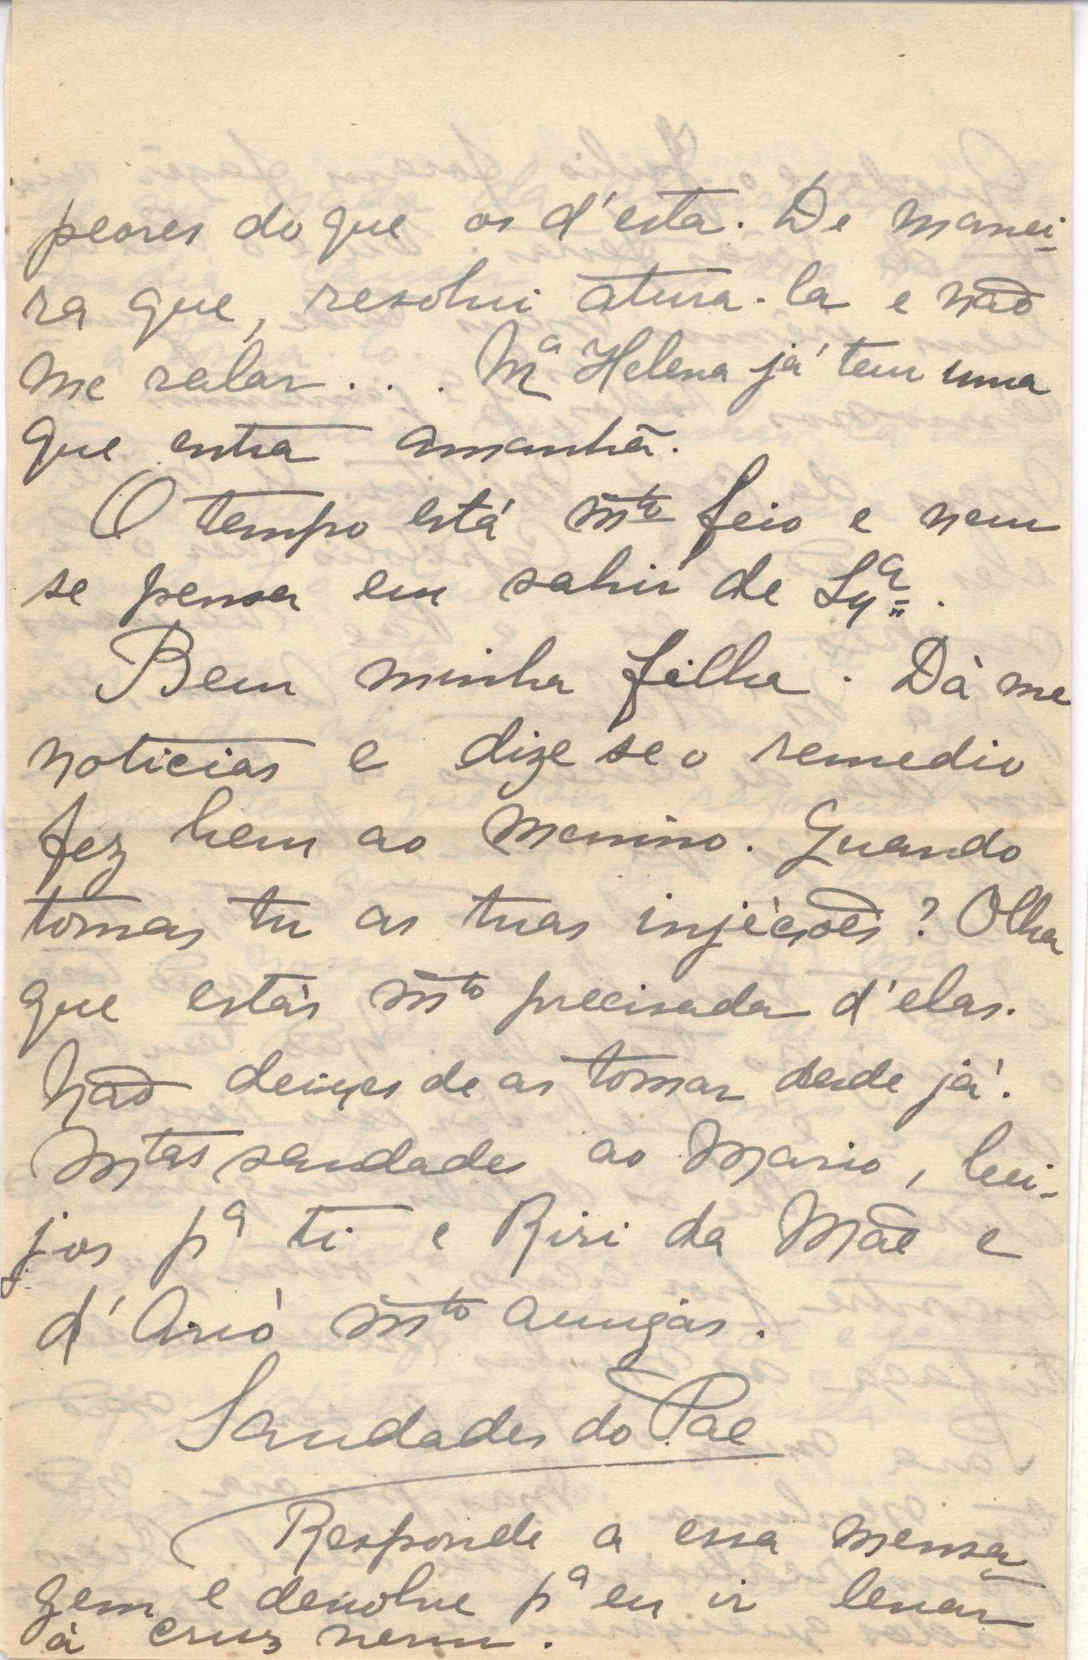 peores do que os d'esta. De manei-
ra que, resolvi atura-la e não
me ralar.... Mª Helena já tem uma
que entra amanhã.
O tempo está mto feio e nem
se pensa em sahir de Lxª.
Bem minha filha. Dà me
noticias e dize se o remedio
fez bem ao menino. Quando
tomas tu as tuas injèções? Olha
que estás mto precisada d'elas.
Não deixes de as tomar desde já.
Mtas saudades ao Mario, bei-
jos pª ti e Riri da Mãe e
d'Avó mto amigas.
Saudades do Pae
Responde a essa mensa-
gem e devolve pª eu ir levar
à cruz verm.